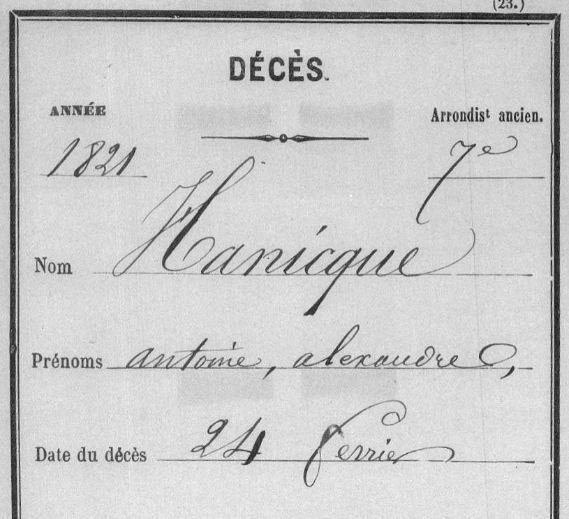 (23.)
DÉCÈS.
ANNÉE Arrondist ancien.
1821 7e
Nom Hanicque
Prénoms antoine, alexandre,
Date du décès 24 fevrier